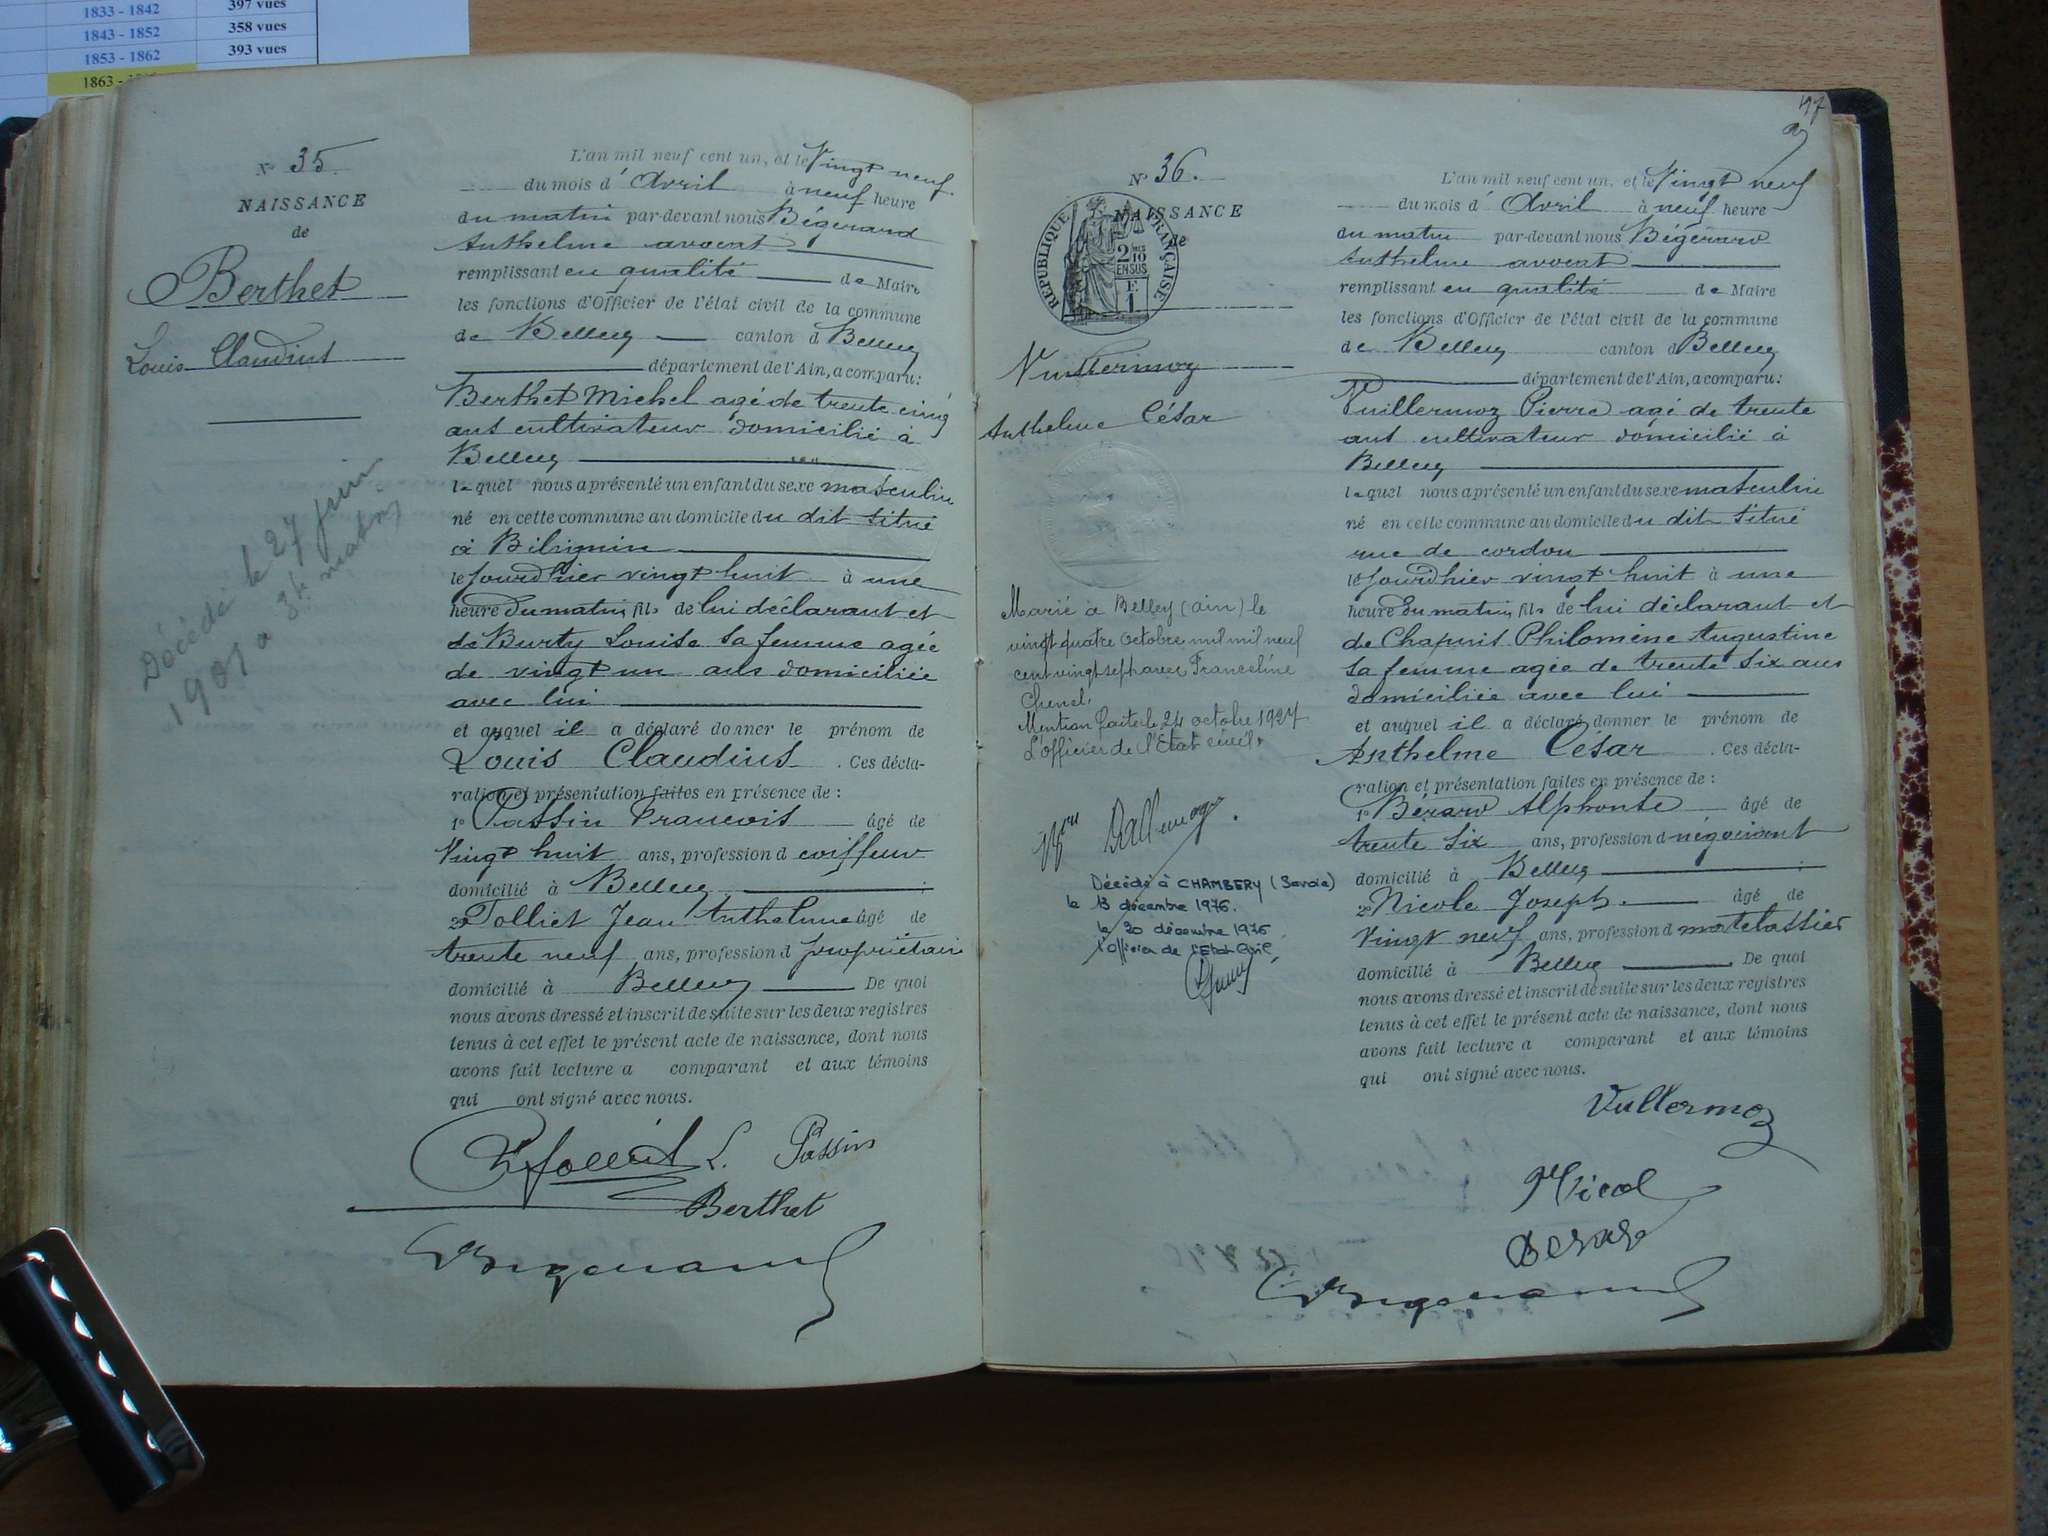 1833 - 1842 397 vues
1843 - 1852 358 vues
1853 - 1862 393 vues
1863 -
N° 35
NAISSANCE
de
Berthet
Louis Claudius
Décédé le 27 juin
1901 a 3h matin
L'an mil neuf cent un, et le Vingt neuf
du mois d'Avril à neuf heure
du matin par-devant nous Bégerard
Anthelme avocat
remplissant en qualité de Maire
les fonctions d'Officier de l'état civil de la commune
de Belley canton d Belley
département de l'Ain, a comparu:
Berthet Michel agé de trente cinq
ans cultivateur domicilié à
Belley
lequel nous a présenté un enfant du sexe masculin
né en cette commune au domicile du dit situé
à Bilignin
le jourd'hier vingt huit à une
heure du matin, fils de lui déclarant et
de Burty Louise sa femme agée
de vingt un ans domiciliée
avec lui
et auquel il a déclaré donner le prénom de
Louis Claudius. Ces décla-
ration et présentation faites en présence de :
1° Passin Francois âgé de
Vingt huit ans, profession d coiffeur
domicilié à Belley ;
2° Tolliet Jean Anthelme âgé de
trente neuf ans, profession d propriétaire
domicilié à Belley De quoi
nous avons dressé et inscrit de suite sur les deux registres
tenus à cet effet le présent acte de naissance, dont nous
avons fait lecture a comparant et aux témoins
qui ont signé avec nous.
L. Passin
Berthet
47
N° 36.
NAISSANCE
de
RÉPUBLIQUE FRANÇAISE
2/10 EN SUS
F. 1
Vuillermoz
Anthelme César
Marié à Belley (ain) le
vingt quatre octobre mil mil neuf
cent vingt sept avec Franceline
Chenel.
Mention faite le 24 octobre 1927
L'officier de l'Etat civil,
Décédé à CHAMBERY (Savoie)
le 13 décembre 1976.
le 30 décembre 1976
l'Officier de l'Etat Civil
L'an mil neuf cent un, et le Vingt neuf
du mois d'Avril à neuf heure
du matin par-devant nous Bégerard
Anthelme avocat
remplissant en qualité de Maire
les fonctions d'Officier de l'état civil de la commune
de Belley canton d Belley
département de l'Ain, a comparu:
Vuillermoz Pierre agé de trente
ans cultivateur domicilié à
Belley
lequel nous a présenté un enfant du sexe masculin
né en cette commune au domicile du dit situé
rue de cordon
le jourd'hier vingt huit à une
heure du matin, fils de lui déclarant et
de Chapuis Philomène Augustine
sa femme agée de trente six ans
domiciliée avec lui
et auquel il a déclaré donner le prénom de
Anthelme César. Ces décla-
ration et présentation faites en présence de :
1° Bérard Alphonse âgé de
trente six ans, profession d négociant
domicilié à Belley ;
2° Nicole Joseph âgé de
Vingt neuf ans, profession d matelassier
domicilié à Belley De quoi
nous avons dressé et inscrit de suite sur les deux registres
tenus à cet effet le présent acte de naissance, dont nous
avons fait lecture a comparant et aux témoins
qui ont signé avec nous.
Vullermoz
Nicol
Berard